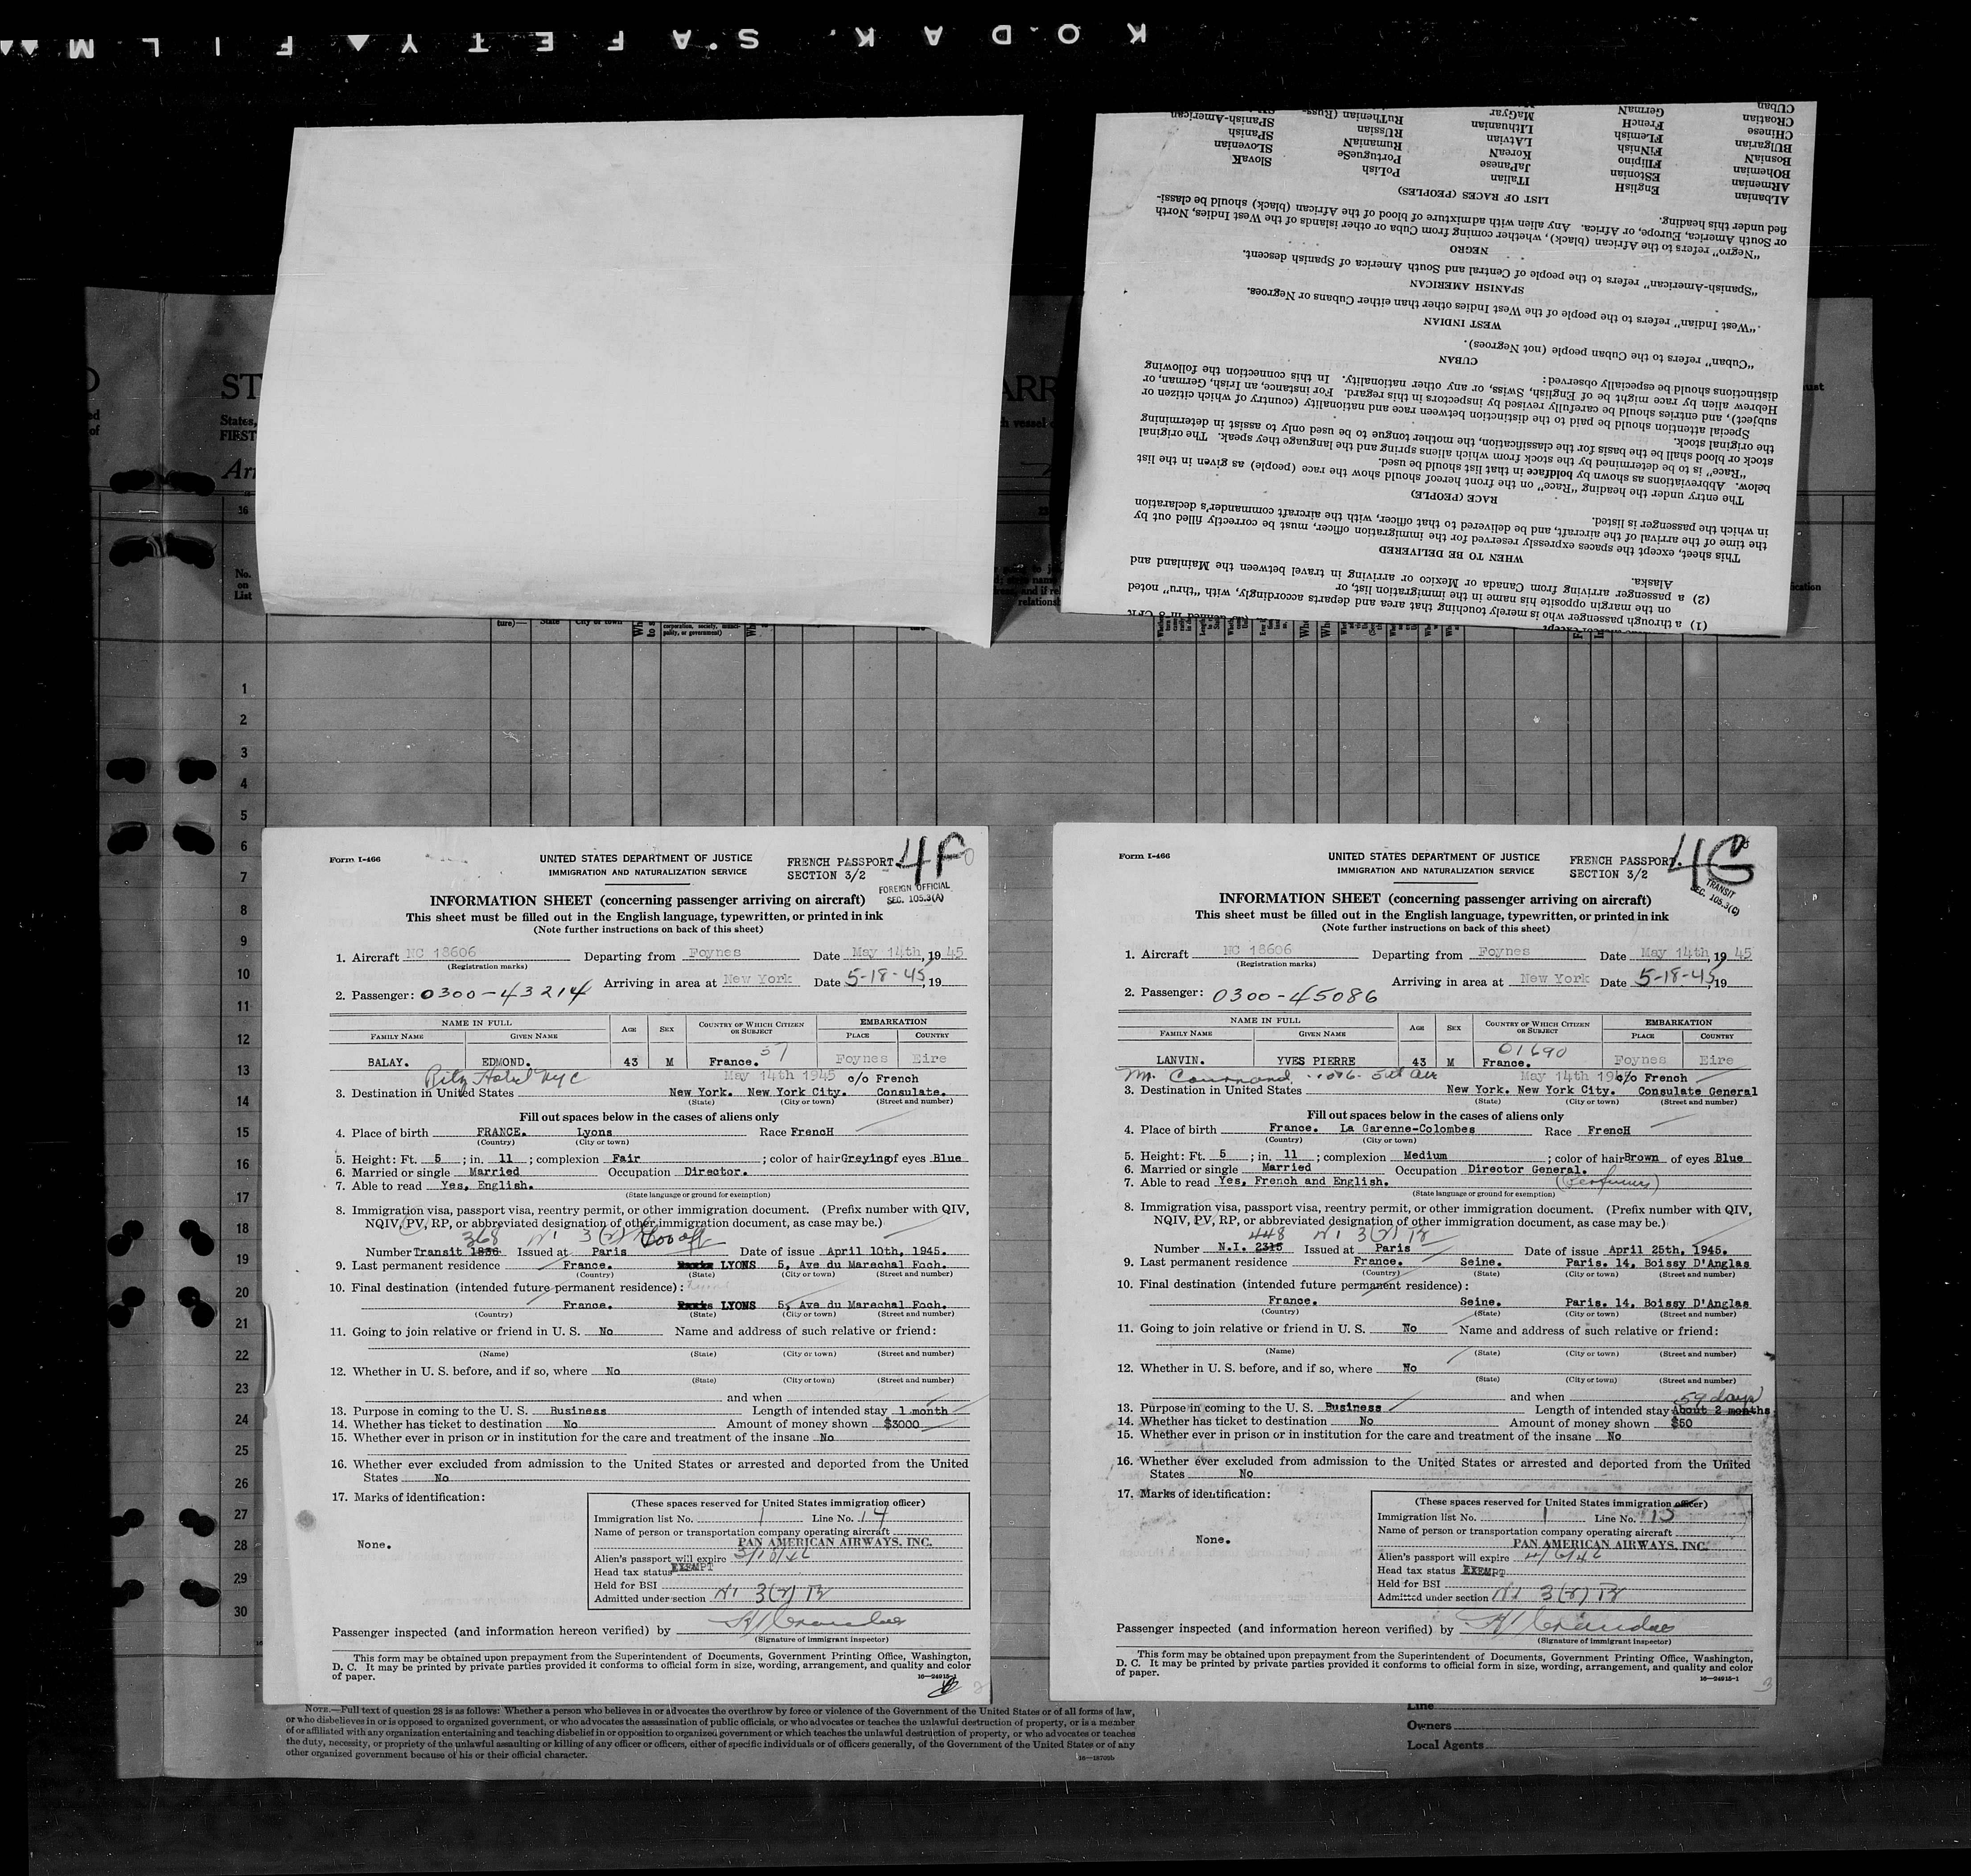 KODAK SAFETY FILM
SlovaK
SLovenian
SPanish
SPanish-American
PoLish
PortugueSe
RumaniaN
RUssian
RuThenian (Russ-
ITalian
JaPanese
KoreaN
LAtvian
LIthuanian
MaGyar
EnglisH
EStonian
Filipino
FiNnish
FLemish
FrencH
GermaN
ALbanian
ARmenian
BOhemian
BosniaN
BUlgarian
CHinese
CRoatian
CUban
LIST OF RACES (PEOPLES)
fied under this heading.
or South America, Europe, or Africa. Any alien with admixture of blood of the African (black) should be classi-
"Negro" refers to the African (black), whether coming from Cuba or other islands of the West Indies, North
NEGRO
"Spanish-American" refers to the people of Central and South America of Spanish descent.
SPANISH AMERICAN
"West Indian" refers to the people of the West Indies other than either Cubans or Negroes.
WEST INDIAN
"Cuban" refers to the Cuban people (not Negroes).
CUBAN
distinctions should be especially observed:
Hebrew alien by race might be of English, Swiss, or any other nationality. In this connection the following
subject), and entries should be carefully revised by inspectors in this regard. For instance, an Irish, German, or
Special attention should be paid to the distinction between race and nationality (country of which citizen or
the original stock.
stock or blood shall be the basis for the classification, the mother tongue to be used only to assist in determining
"Race" is to be determined by the stock from which aliens spring and the language they speak. The original
below. Abbreviations as shown by boldface in that list should be used.
The entry under the heading "Race" on the front hereof should show the race (people) as given in the list
RACE (PEOPLE)
in which the passenger is listed.
the time of the arrival of the aircraft, and be delivered to that officer, with the aircraft commander's declaration
This sheet, except the spaces expressly reserved for the immigration officer, must be correctly filled out by
WHEN TO BE DELIVERED
Alaska.
(2) a passenger arriving from Canada or Mexico or arriving in travel between the Mainland and
on the margin opposite his name in the immigration list, or
(1) a through passenger who is merely touching that area and departs accordingly, with "thru" noted
States,
FIRST
16
No.
on
List
(ture)—
State
City or town
corporation, society, munici-
pality, or government)
1
2
3
4
5
6
7
8
9
10
11
12
13
14
15
16
17
18
19
20
21
22
23
24
25
26
27
28
29
30
Form I-466
UNITED STATES DEPARTMENT OF JUSTICE
IMMIGRATION AND NATURALIZATION SERVICE
FRENCH PASSPORT.
SECTION 3/2
4F
FOREIGN OFFICIAL
SEC. 105.3(A)
INFORMATION SHEET (concerning passenger arriving on aircraft)
This sheet must be filled out in the English language, typewritten, or printed in ink
(Note further instructions on back of this sheet)
1. Aircraft NC 18606 Departing from Foynes Date May 14th, 1945
(Registration marks)
Arriving in area at New York Date 5-18-45, 19
2. Passenger: 0300-43214
NAME IN FULL AGE SEX COUNTRY OF WHICH CITIZEN OR SUBJECT EMBARKATION
FAMILY NAME GIVEN NAME PLACE COUNTRY
BALAY. EDMOND. 43 M France. 57 Foynes Eire
Ritz Hotel NYC May 14th 1945 c/o French
3. Destination in United States New York. New York City. Consulate.
(State) (City or town) (Street and number)
Fill out spaces below in the cases of aliens only
4. Place of birth FRANCE. Lyons Race FrencH
(Country) (City or town)
5. Height: Ft. 5; in. 11; complexion Fair; color of hair Greying of eyes Blue
6. Married or single Married Occupation Director.
7. Able to read Yes, English.
(State language or ground for exemption)
8. Immigration visa, passport visa, reentry permit, or other immigration document. (Prefix number with QIV,
NQIV, PV, RP, or abbreviated designation of other immigration document, as case may be.)
368
Number Transit 1836 Issued at Paris Date of issue April 10th, 1945.
9. Last permanent residence France. LYONS 5, Ave du Marechal Foch.
(Country) (State) (City or town) (Street and number)
10. Final destination (intended future permanent residence):
France. LYONS 5, Ave du Marechal Foch.
(Country) (State) (City or town) (Street and number)
11. Going to join relative or friend in U. S. No Name and address of such relative or friend:
(Name) (State) (City or town) (Street and number)
12. Whether in U. S. before, and if so, where No
(State) (City or town) (Street and number)
and when
13. Purpose in coming to the U. S. Business Length of intended stay 1 month
14. Whether has ticket to destination No Amount of money shown $3000
15. Whether ever in prison or in institution for the care and treatment of the insane No
16. Whether ever excluded from admission to the United States or arrested and deported from the United
States No
17. Marks of identification:
None.
(These spaces reserved for United States immigration officer)
Immigration list No. 1 Line No. 14
Name of person or transportation company operating aircraft
PAN AMERICAN AIRWAYS, INC.
Alien's passport will expire 3/10/46
Head tax status EXEMPT
Held for BSI
Admitted under section NI 3(2) Tr
Passenger inspected (and information hereon verified) by
(Signature of immigrant inspector)
This form may be obtained upon prepayment from the Superintendent of Documents, Government Printing Office, Washington,
D. C. It may be printed by private parties provided it conforms to official form in size, wording, arrangement, and quality and color
of paper.
16—24915-1
Form I-466
UNITED STATES DEPARTMENT OF JUSTICE
IMMIGRATION AND NATURALIZATION SERVICE
FRENCH PASSPORT.
SECTION 3/2
4G
TRANSIT
SEC. 105.3(C)
INFORMATION SHEET (concerning passenger arriving on aircraft)
This sheet must be filled out in the English language, typewritten, or printed in ink
(Note further instructions on back of this sheet)
1. Aircraft NC 18606 Departing from Foynes Date May 14th, 1945
(Registration marks)
Arriving in area at New York Date 5-18-45, 19
2. Passenger: 0300-45086
NAME IN FULL AGE SEX COUNTRY OF WHICH CITIZEN OR SUBJECT EMBARKATION
FAMILY NAME GIVEN NAME PLACE COUNTRY
01690
LANVIN. YVES PIERRE 43 M France. Foynes Eire
Mr. Cournand 5th Ave May 14th 1945 c/o French
3. Destination in United States New York. New York City. Consulate General
(State) (City or town) (Street and number)
Fill out spaces below in the cases of aliens only
4. Place of birth France. La Garenne-Colombes Race FrencH
(Country) (City or town)
5. Height: Ft. 5; in. 11; complexion Medium; color of hair Brown of eyes Blue
6. Married or single Married Occupation Director General.
7. Able to read Yes, French and English. (Perfumes)
(State language or ground for exemption)
8. Immigration visa, passport visa, reentry permit, or other immigration document. (Prefix number with QIV,
NQIV, PV, RP, or abbreviated designation of other immigration document, as case may be.)
448 NI 3(2) Tr
Number N.I. 2315 Issued at Paris Date of issue April 25th, 1945.
9. Last permanent residence France. Seine. Paris. 14, Boissy D'Anglas
(Country) (State) (City or town) (Street and number)
10. Final destination (intended future permanent residence):
France. Seine. Paris. 14, Boissy D'Anglas
(Country) (State) (City or town) (Street and number)
11. Going to join relative or friend in U. S. No Name and address of such relative or friend:
(Name) (State) (City or town) (Street and number)
12. Whether in U. S. before, and if so, where No
(State) (City or town) (Street and number)
and when
59 days
13. Purpose in coming to the U. S. Business Length of intended stay About 2 months
14. Whether has ticket to destination No Amount of money shown $50
15. Whether ever in prison or in institution for the care and treatment of the insane No
16. Whether ever excluded from admission to the United States or arrested and deported from the United
States No
17. Marks of identification:
None.
(These spaces reserved for United States immigration officer)
Immigration list No. 1 Line No. 15
Name of person or transportation company operating aircraft
PAN AMERICAN AIRWAYS, INC.
Alien's passport will expire 4/6/46
Head tax status EXEMPT
Held for BSI
Admitted under section NI 3(2) Tr
Passenger inspected (and information hereon verified) by
(Signature of immigrant inspector)
This form may be obtained upon prepayment from the Superintendent of Documents, Government Printing Office, Washington,
D. C. It may be printed by private parties provided it conforms to official form in size, wording, arrangement, and quality and color
of paper.
16—24915-1
NOTE.—Full text of question 28 is as follows: Whether a person who believes in or advocates the overthrow by force or violence of the Government of the United States or of all forms of law,
or who disbelieves in or is opposed to organized government, or who advocates the assassination of public officials, or who advocates or teaches the unlawful destruction of property, or is a member
of or affiliated with any organization entertaining and teaching disbelief in or opposition to organized government or which teaches the unlawful destruction of property, or who advocates or teaches
the duty, necessity, or propriety of the unlawful assaulting or killing of any officer or officers, either of specific individuals or of officers generally, of the Government of the United States or of any
other organized government because of his or their official character.
16—18709b
Line
Owners
Local Agents